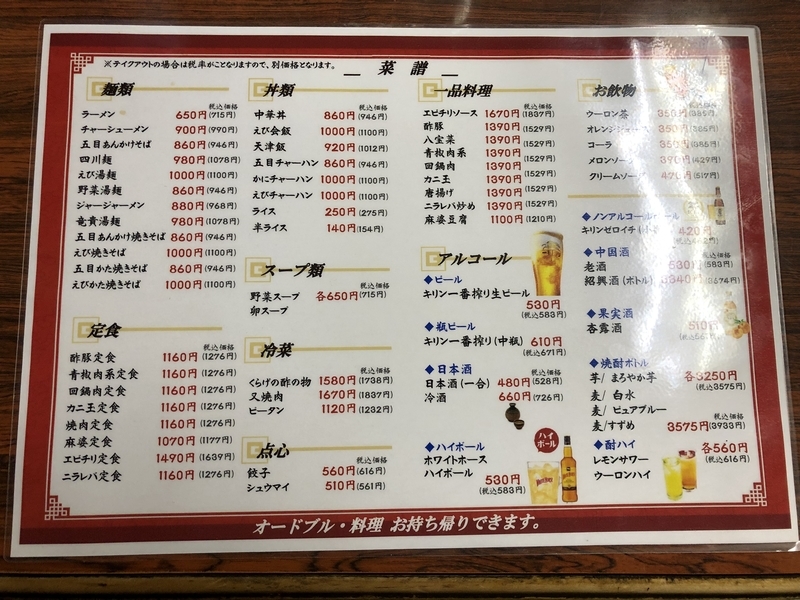 ※テイクアウトの場合は税率がことなりますので、別価格となります。
菜譜
麺類
税込価格
ラーメン 650円(715円)
チャーシューメン 900円(990円)
五目あんかけそば 860円(946円)
四川麺 980円(1078円)
えび湯麺 1000円(1100円)
野菜湯麺 860円(946円)
ジャージャーメン 880円(968円)
竜貴湯麺 980円(1078円)
五目あんかけ焼きそば 860円(946円)
えび焼きそば 1000円(1100円)
五目かた焼きそば 860円(946円)
えびかた焼きそば 1000円(1100円)
定食
税込価格
酢豚定食 1160円(1276円)
青椒肉糸定食 1160円(1276円)
回鍋肉定食 1160円(1276円)
カニ玉定食 1160円(1276円)
焼肉定食 1160円(1276円)
麻婆定食 1070円(1177円)
エビチリ定食 1490円(1639円)
ニラレバ定食 1160円(1276円)
丼類
税込価格
中華丼 860円(946円)
えび会飯 1000円(1100円)
天津飯 920円(1012円)
五目チャーハン 860円(946円)
かにチャーハン 1000円(1100円)
えびチャーハン 1000円(1100円)
ライス 250円(275円)
半ライス 140円(154円)
スープ類
税込価格
野菜スープ 各650円(715円)
卵スープ
冷菜
税込価格
くらげの酢の物 1580円(1738円)
叉焼肉 1670円(1837円)
ピータン 1120円(1232円)
点心
税込価格
餃子 560円(616円)
シュウマイ 510円(561円)
一品料理
税込価格
エビチリソース 1670円(1837円)
酢豚 1390円(1529円)
八宝菜 1390円(1529円)
青椒肉糸 1390円(1529円)
回鍋肉 1390円(1529円)
カニ玉 1390円(1529円)
唐揚げ 1390円(1529円)
ニラレバ炒め 1390円(1529円)
麻婆豆腐 1100円(1210円)
アルコール
◆ビール
キリン一番搾り生ビール
530円
(税込583円)
◆瓶ビール
キリン一番搾り(中瓶) 610円
(税込671円)
◆日本酒
税込価格
日本酒(一合) 480円(528円)
冷酒 660円(726円)
◆ハイボール
ホワイトホース
ハイボール 530円
(税込583円)
ハイボール
お飲物
税込価格
ウーロン茶 350円(385円)
オレンジジュース 350円(385円)
コーラ 350円(385円)
メロンソーダ 390円(429円)
クリームソーダ 470円(517円)
◆ノンアルコールビール
キリンゼロイチ 420円
◆中国酒
税込価格
老酒 530円(583円)
紹興酒(ボトル) 3340円(3674円)
◆果実酒
杏露酒 510円
◆焼酎ボトル
芋/まろやか芋 各3250円
麦/白水 (税込3575円)
麦/ピュアブルー
税込価格
麦/すずめ 3575円(3933円)
◆酎ハイ 各560円
レモンサワー (税込616円)
ウーロンハイ
オードブル・料理 お持ち帰りできます。